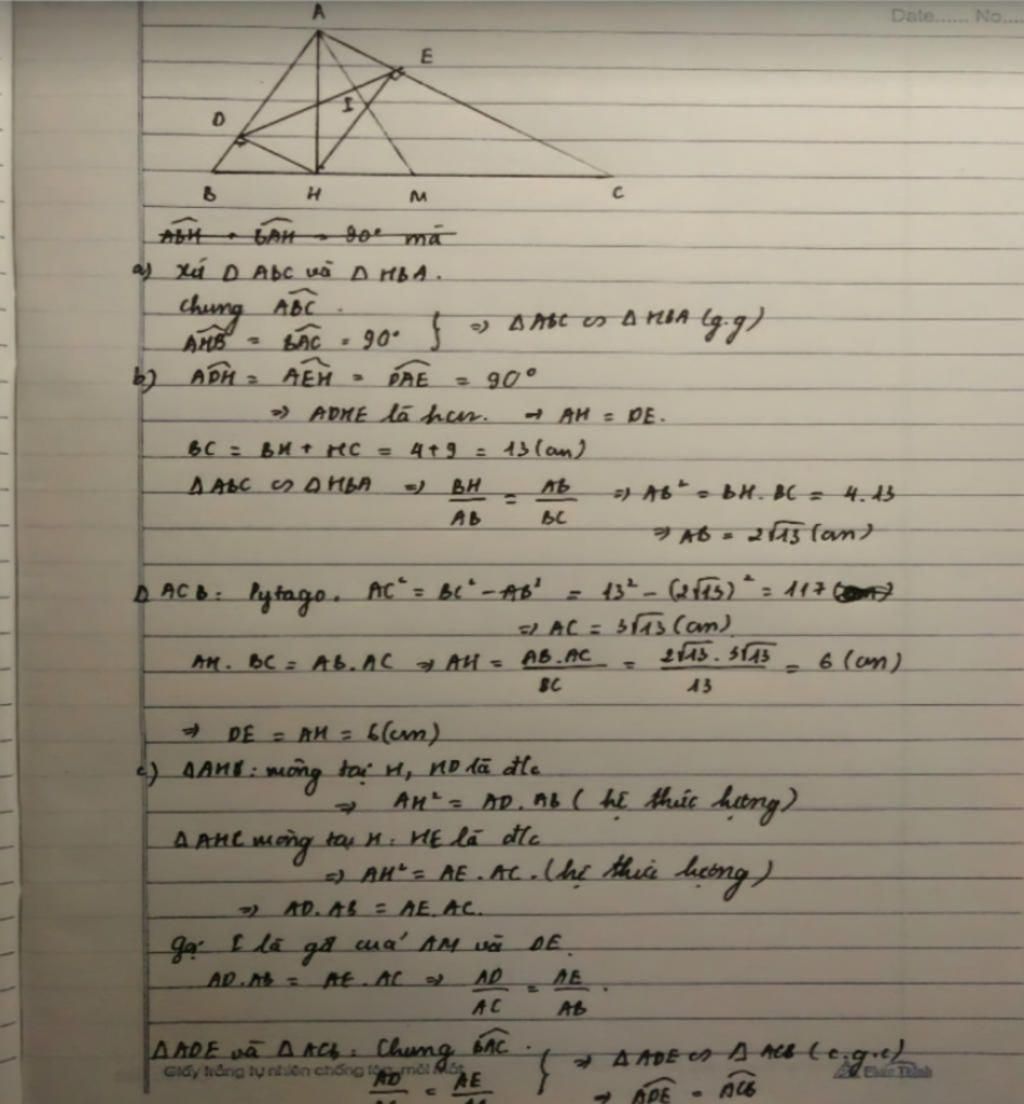 Date...... No....
A
E
D
I
B H M C
ABH + BAH = 90° mà
a) Xét Δ ABC và Δ HBA.
Chung ABC.
AHB = BAC = 90° } => Δ ABC ∽ Δ HBA (g.g)
b) ADH = AEH = DAE = 90°
=> ADHE là hcn. → AH = DE.
BC = BH + HC = 4+9 = 13 (cm)
Δ ABC ∽ Δ HBA => BH/AB = AB/BC => AB² = BH. BC = 4.13
=> AB = 2√13 (cm)
Δ ACB: Pytago. AC² = BC² - AB² = 13² - (2√13)² = 117
=> AC = 3√13 (cm)
AH. BC = AB. AC => AH = AB.AC/BC = 2√13 . 3√13/13 = 6 (cm)
=> DE = AH = 6 (cm)
c) Δ AHB: vuông tại H, HD là đ/c
=> AH² = AD. AB ( hệ thức lượng)
Δ AHC vuông tại H: HE là đ/c
=> AH² = AE. AC. (hệ thức lượng)
=> AD. AB = AE. AC.
Gọi I là gđ của AM và DE.
AD.AB = AE. AC => AD/AC = AE/AB.
Δ ADE và Δ ACB: Chung BAC. } => Δ ADE ∽ Δ ACB (c.g.c)
Giấy trắng tự nhiên chống lóa, mỏi mắt
AD = AE => ADE = ACB